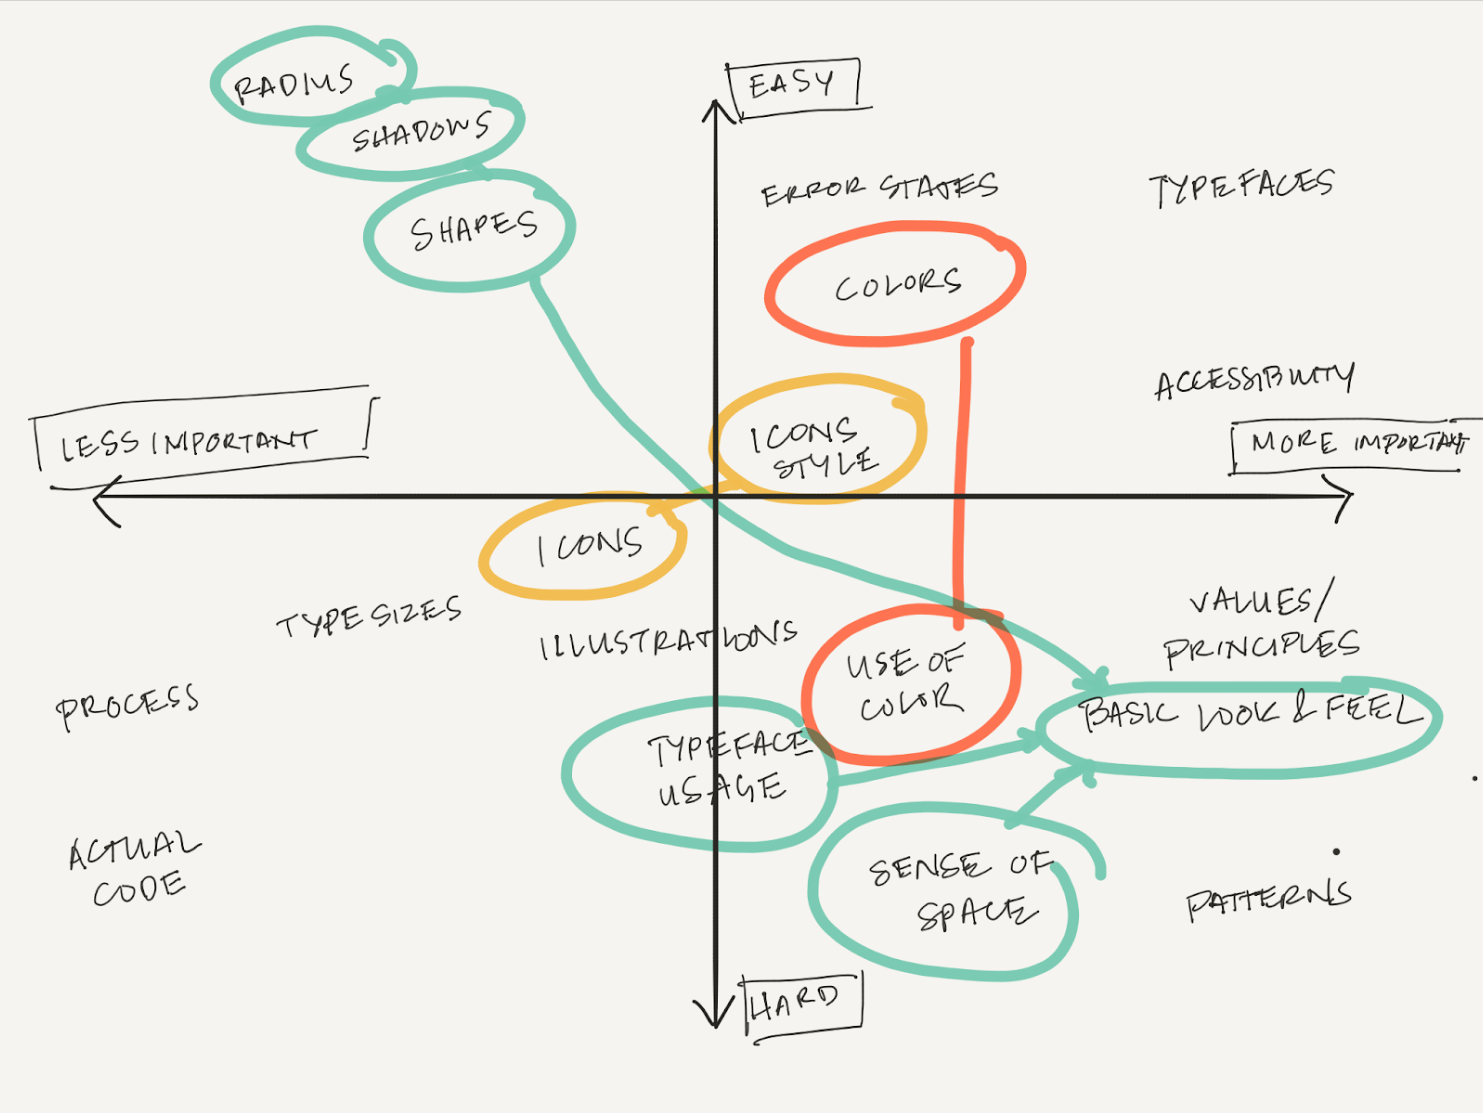 RADIUS
EASY
SHADOWS
ERROR STATES
TYPEFACES
SHAPES
COLORS
ACCESSIBILITY
LESS IMPORTANT
ICONS
STYLE
MORE IMPORTANT
ICONS
TYPE SIZES
ILLUSTRATIONS
VALUES/
PRINCIPLES
USE OF
COLOR
PROCESS
BASIC LOOK & FEEL
TYPEFACE
USAGE
ACTUAL
CODE
SENSE OF
SPACE
PATTERNS
HARD